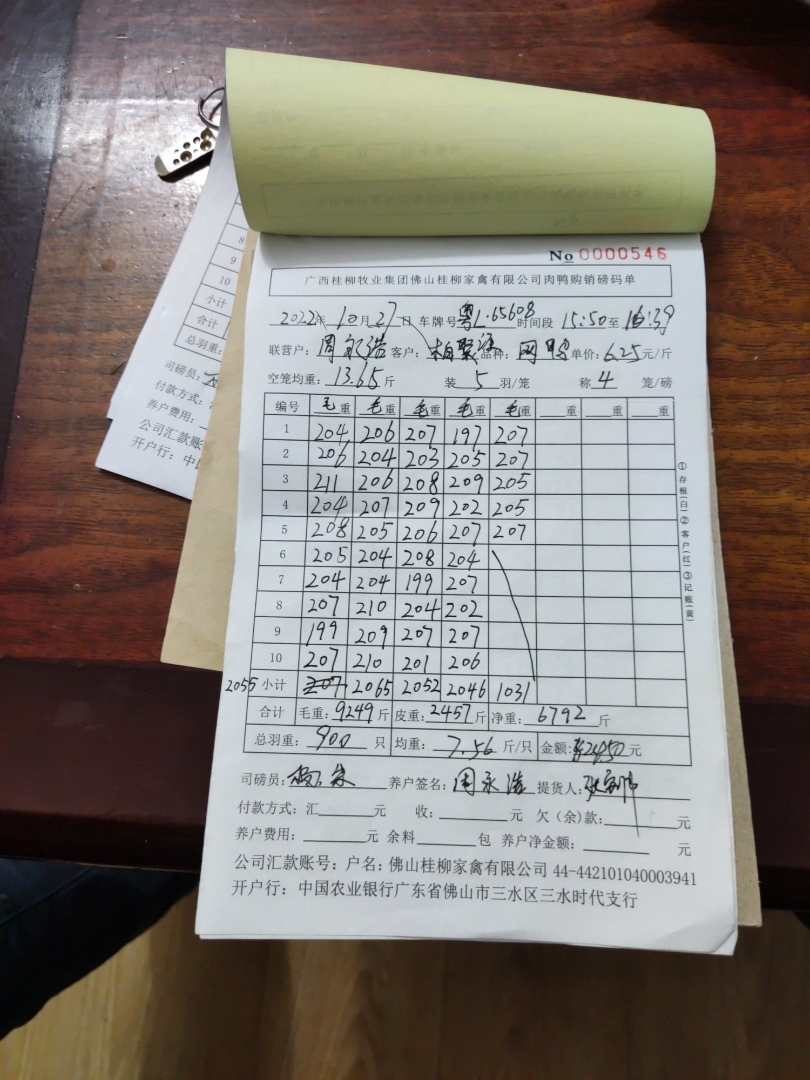 No 0000546
广西桂柳牧业集团佛山桂柳家禽有限公司肉鸭购销磅码单
2022年 10月27日 车牌号粤L·65608 时间段 15:50至16:39
联营户：周永浩 客户： 品种： 单价：6.25元/斤
空笼均重：13.65斤 装 5 羽/笼 称 4 笼/磅
编号 毛重 毛重 毛重 毛重 毛重 重 重 重
1 204 206 207 197 207
2 206 204 203 205 207
3 211 206 208 209 205
4 204 207 209 202 205
5 208 205 206 207 207
6 205 204 208 204
7 204 204 199 207
8 207 210 204 202
9 199 209 207 207
10 207 210 201 206
2055 小计 2065 2052 2046 1031
合计 毛重：9249斤 皮重：2457斤 净重：6792斤
总羽重：900只 均重：7.56斤/只 金额：元
司磅员： 养户签名：周永浩 提货人：
付款方式：汇 元 收： 元 欠（余）款： 元
养户费用： 元 余料 包 养户净金额： 元
公司汇款账号：户名：佛山桂柳家禽有限公司 44-442101040003941
开户行：中国农业银行广东省佛山市三水区三水时代支行
①存根(白)②客户(红)③记账(黄)
8
9
10
小计
合计
总羽重：
司磅员：
付款方式：
养户费用：
公司汇款账
开户行：中